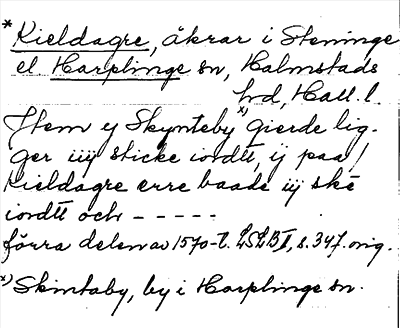 * Kieldagre, åkrar i Steninge
el. Harplinge sn, Halmstads
hd, Hall. l.
Item ij Skynteby x) gierde lig-
ger iiij sticke iordtt, ij paa /
Kieldagre erre baade iij ske
iordtt och - - - - -
förra delen av 1570-t. LSLB I, s. 347. orig.
x) Skintaby, by i Harplinge sn.